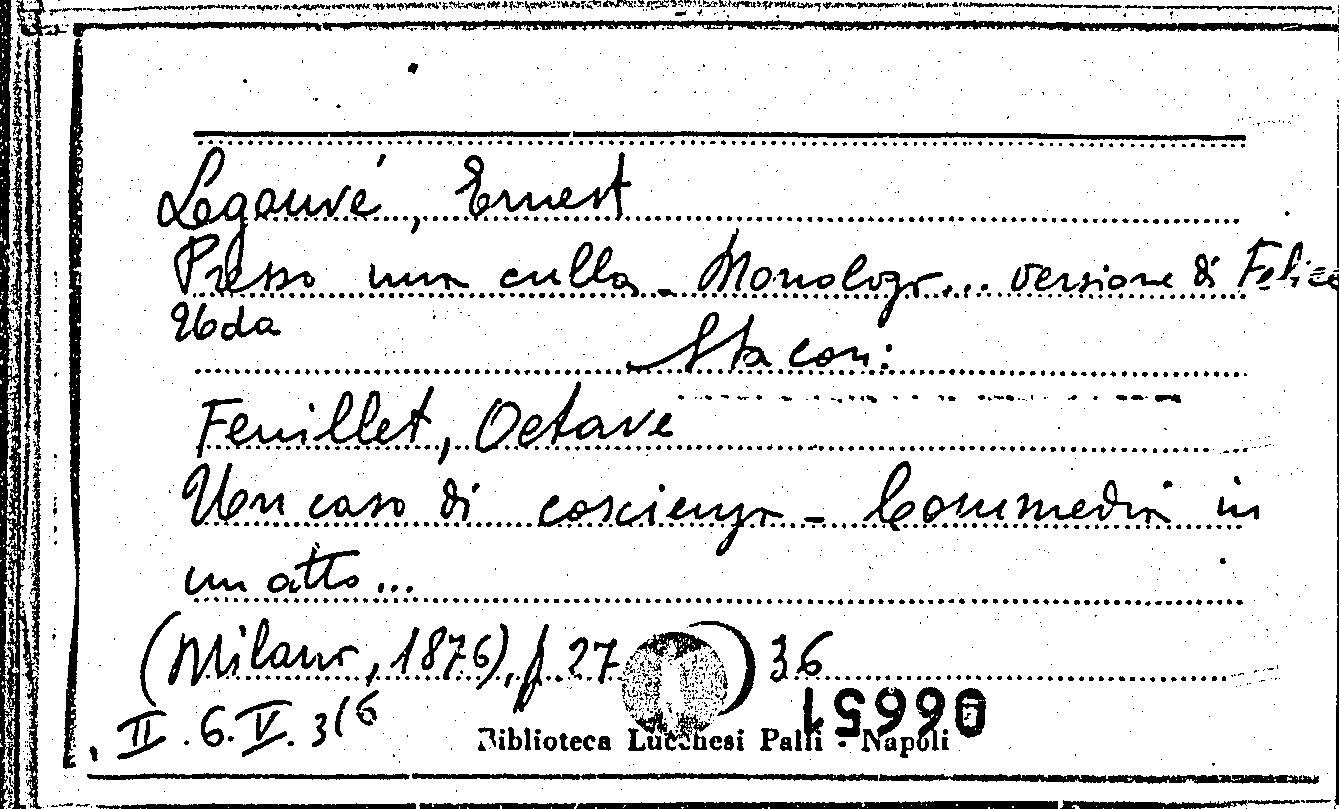 Legouvé, Ernest
Presso una culla - Monologo... versione di Felice
Uda
Sta con:
Feuillet, Octave
Un caso di coscienza - Commedia in
un atto...
(Milano, 1876), f. 27 ) 36
II. 6. V. 3(6
Biblioteca Lucchesi Palli - Napoli
06651